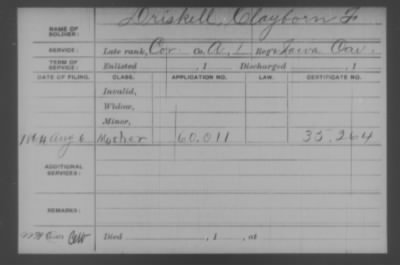 NAME OF SOLDIER: Driskell, Clayborn F
SERVICE: Late rank, Cor Co. A, 1 Reg't Iowa Cav.
TERM OF SERVICE: Enlisted , 1 Discharged , 1
DATE OF FILING. CLASS. APPLICATION NO. LAW. CERTIFICATE NO.
Invalid,
Widow,
Minor,
1864 Aug 6 Mother 60.011 35.264
ADDITIONAL SERVICES:
REMARKS:
Died , 1 , at